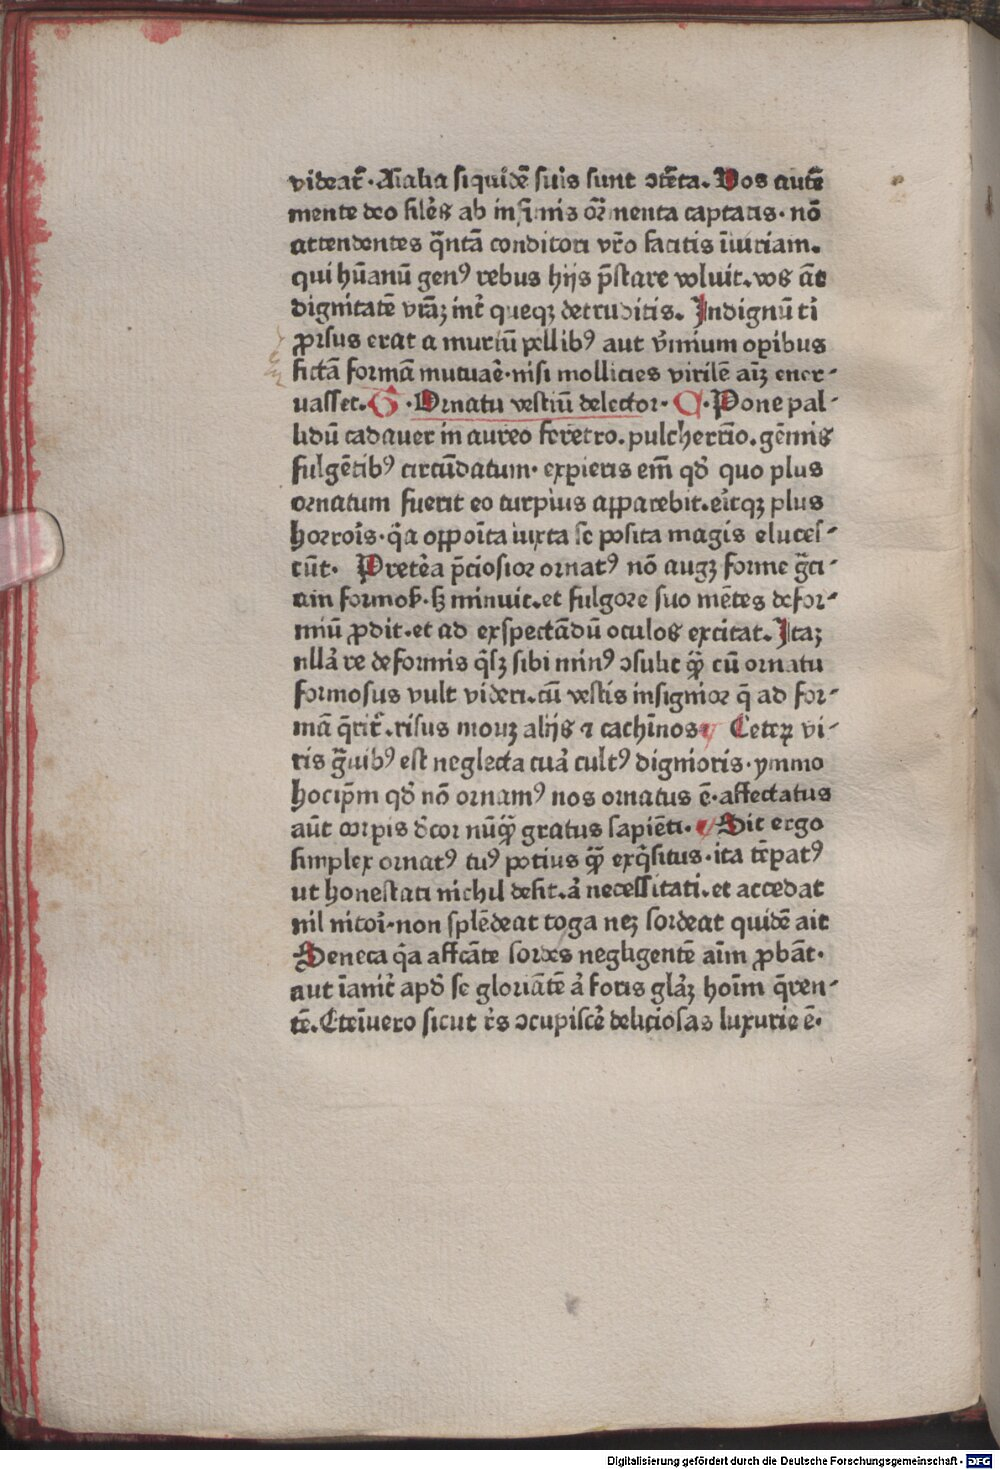 videat᷑. Aīalia siquidē suis sunt ↄtēta. Vos autē
mente deo siles̉ ab infimis or̄namenta captatis. nō
attendentes q̄ntā conditori vr̄o facitis iniuriam.
qui hūanū genꝰ rebus hijs p̄stare voluit. vos āt
dignitatē vrāꝫ int̉ queqꝫ detruditis. Indignū ti
ꝓrsus erat a muriū pellibꝰ aut v̉mium opibus
fictā formā mutuare. nisi mollicies virilē aīꝫ ener-
vasset. G. Ornatu vestiū delector. C. Pone pal-
lidū cadauer in aureo feretro. pulcherrīo. gēmis
fulgētibꝰ circūdatum. experieris em̄ qd̓ quo plus
ornatum fuerit eo turpius apparebit. eritqꝫ plus
horroris. q̄a opp̄oīta iuxta se posita magis eluces-
cūt. Pretea̓ p̄ciosior ornatꝰ nō augꝫ forme gr̄ci-
am formoß. sꝫ minuit. et fulgore suo mētes defor-
miū ꝓdit. et ad exspectādū oculos excitat. Itaꝫ
nlla̓ re deformis q̄sꝫ sibi minꝰ ↄsulit qꝫ̄ cū ornatu
formosus vult videri. cū vestis insignior q̄ ad for-
mā q̄rit᷑. risus mouꝫ alijs ⁊ cachīnos Ceteꝝ vi-
ris gr̄uibꝰ est neglecta cura̓ cultꝰ dignioris. ymmo
hocip̄m qd̓ nō ornamꝰ nos ornatus ē. affectatus
aūt corpis dec̓or nūqꝫ̄ gratus sapiēti. Sit ergo
simplex ornatꝰ tuꝰ potius qꝫ̄ exq̄situs. ita tēpatꝰ
ut honestati nichil desit. a̓ necessitati. et accedat
nil nitori. non splēdeat toga neꝫ sordeat quidē ait
Seneca q̄a affcāte sordes negligentē aīm ꝓbāt.
aut īanit̓ apd̓ se gloriātē a̓ foris gla̓ꝫ hoīm q̄ren-
tē. Eteīuero sicut res̉ ↄcupisce̓ deliciosas luxurie ē.
Digitalisierung gefördert durch die Deutsche Forschungsgemeinschaft - DFG